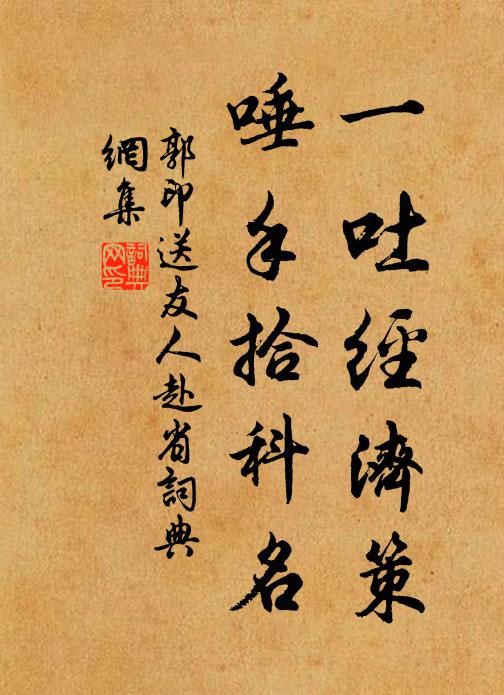 一吐經濟策
唾手拾科名
郭印送友人赴省詞典
網集
詞典
網印